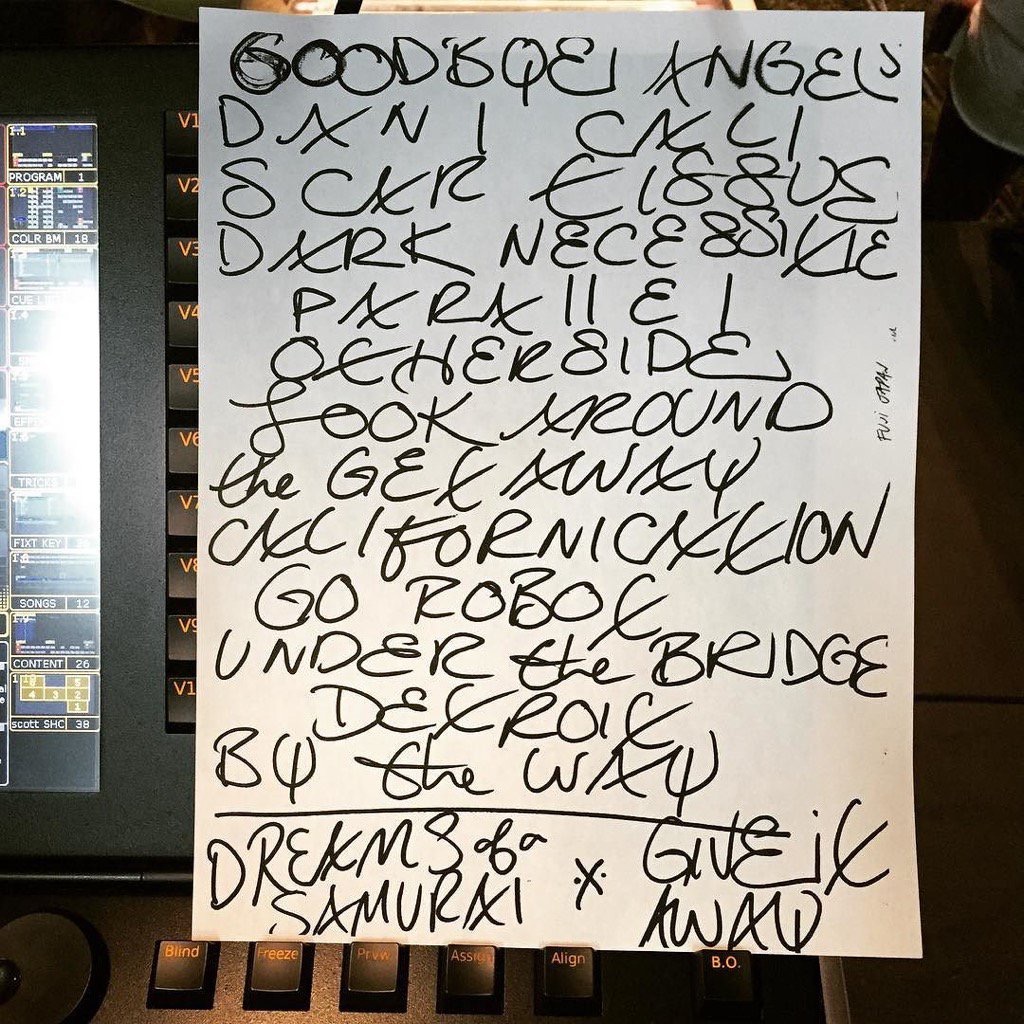 GOODBYE ANGELS
DANI CALI
SCAR TISSUE
DARK NECESSITIE
PARALLEL
OTHERSIDE
LOOK AROUND
the GETAWAY
CALIFORNICATION
GO ROBOT
UNDER the BRIDGE
DETROIT
BY the WAY
DREAMS of a
SAMURAI
GIVE it
AWAY
FUJI JAPAN
1.1
PROGRAM 1
1.2
COLR BM 18
CUE LI
1.4
TRICKS
FIXT KEY
SONGS 12
1.9
CONTENT 26
4 3 2
1
scott SHC 38
V1
V2
V3
V4
V5
V6
V7
V8
V9
V1
Blind
Freeze
Prvw
Assign
Align
B.O.